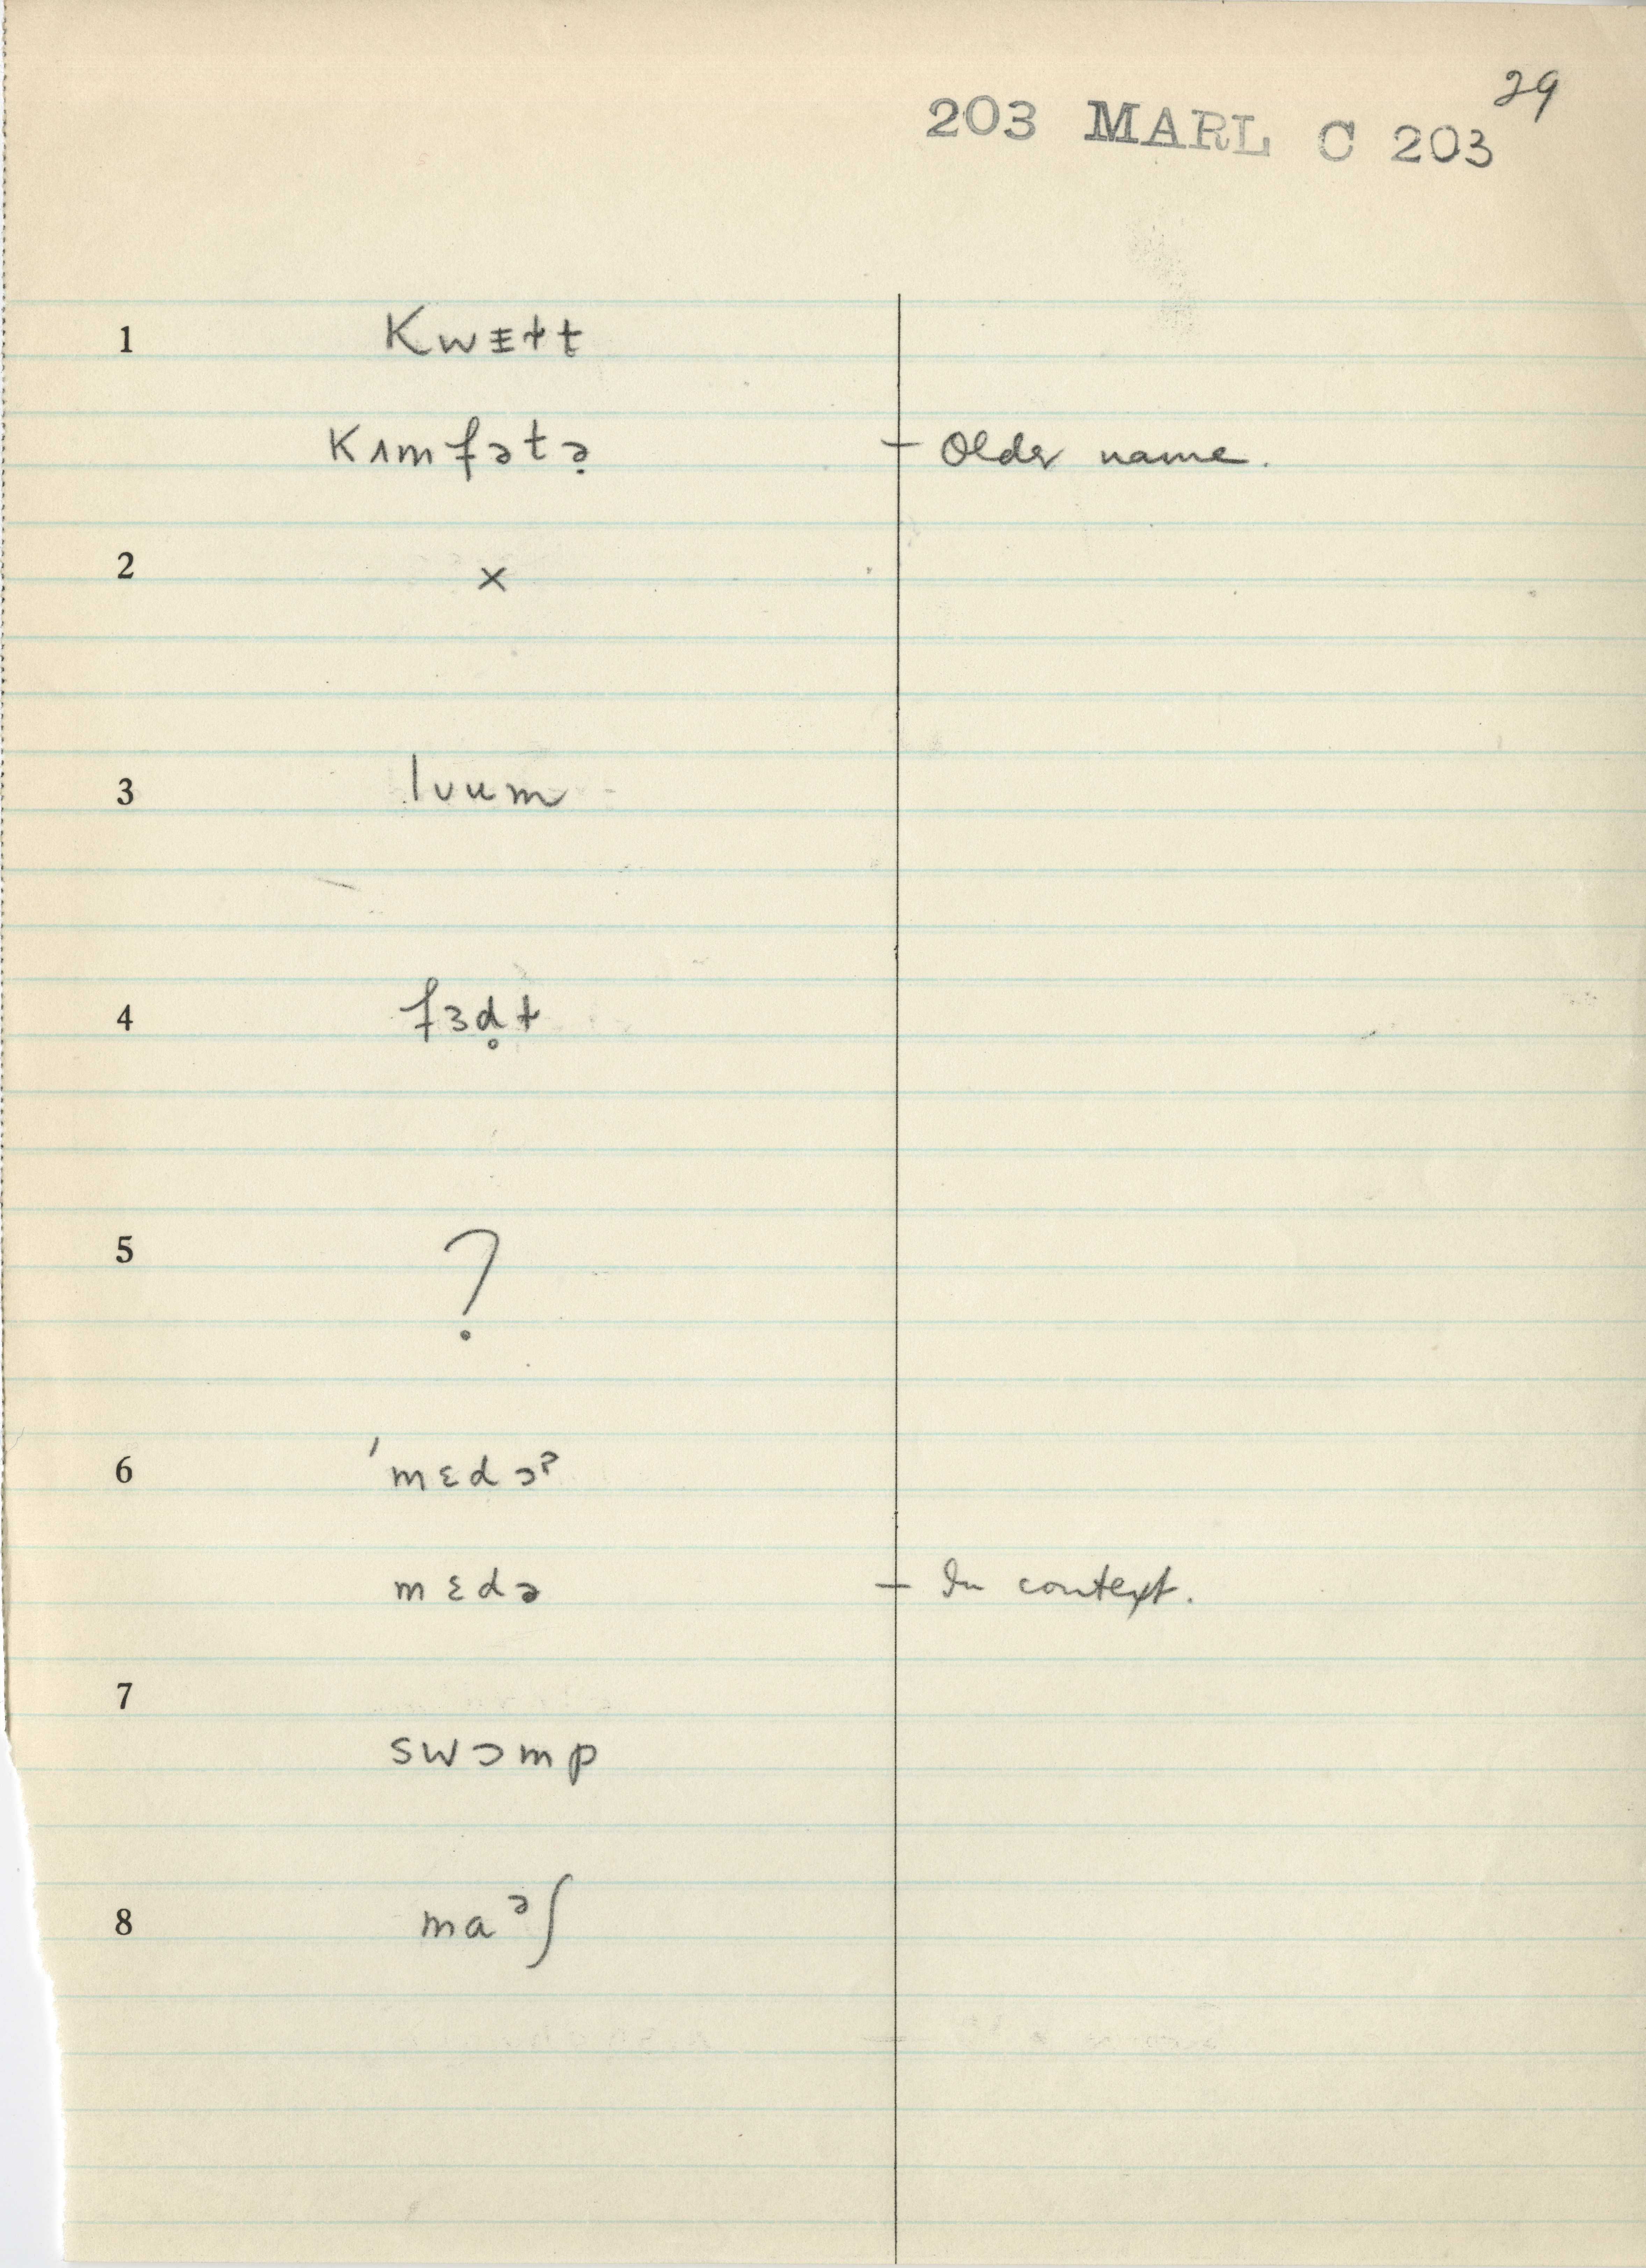 29
203 MARL C 203
1 kwɪɬt
kʌmfətə̣ – Older name.
2 ×
3 lʋum
4 fɜd̥ɫ
5 ?
6 ˈmɛdɔˀ
mɛdə – In context.
7
swɔmp
8 maᵊʃ